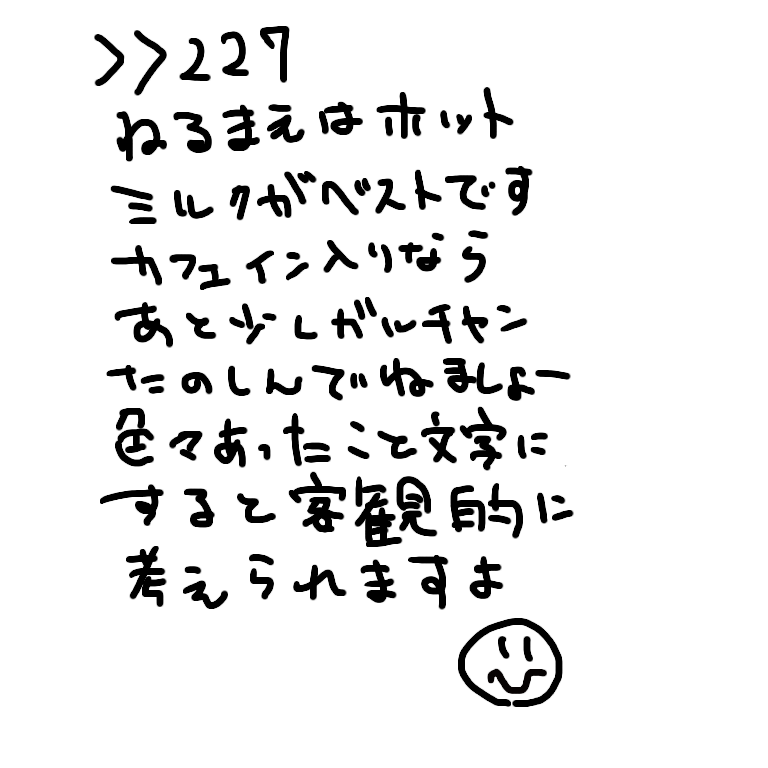 >>227
ねるまえはホット
ミルクがベストです
カフェイン入りなら
あと少しガルチャン
たのしんでねましょー
色々あったこと文字に
すると客観的に
考えられますよ